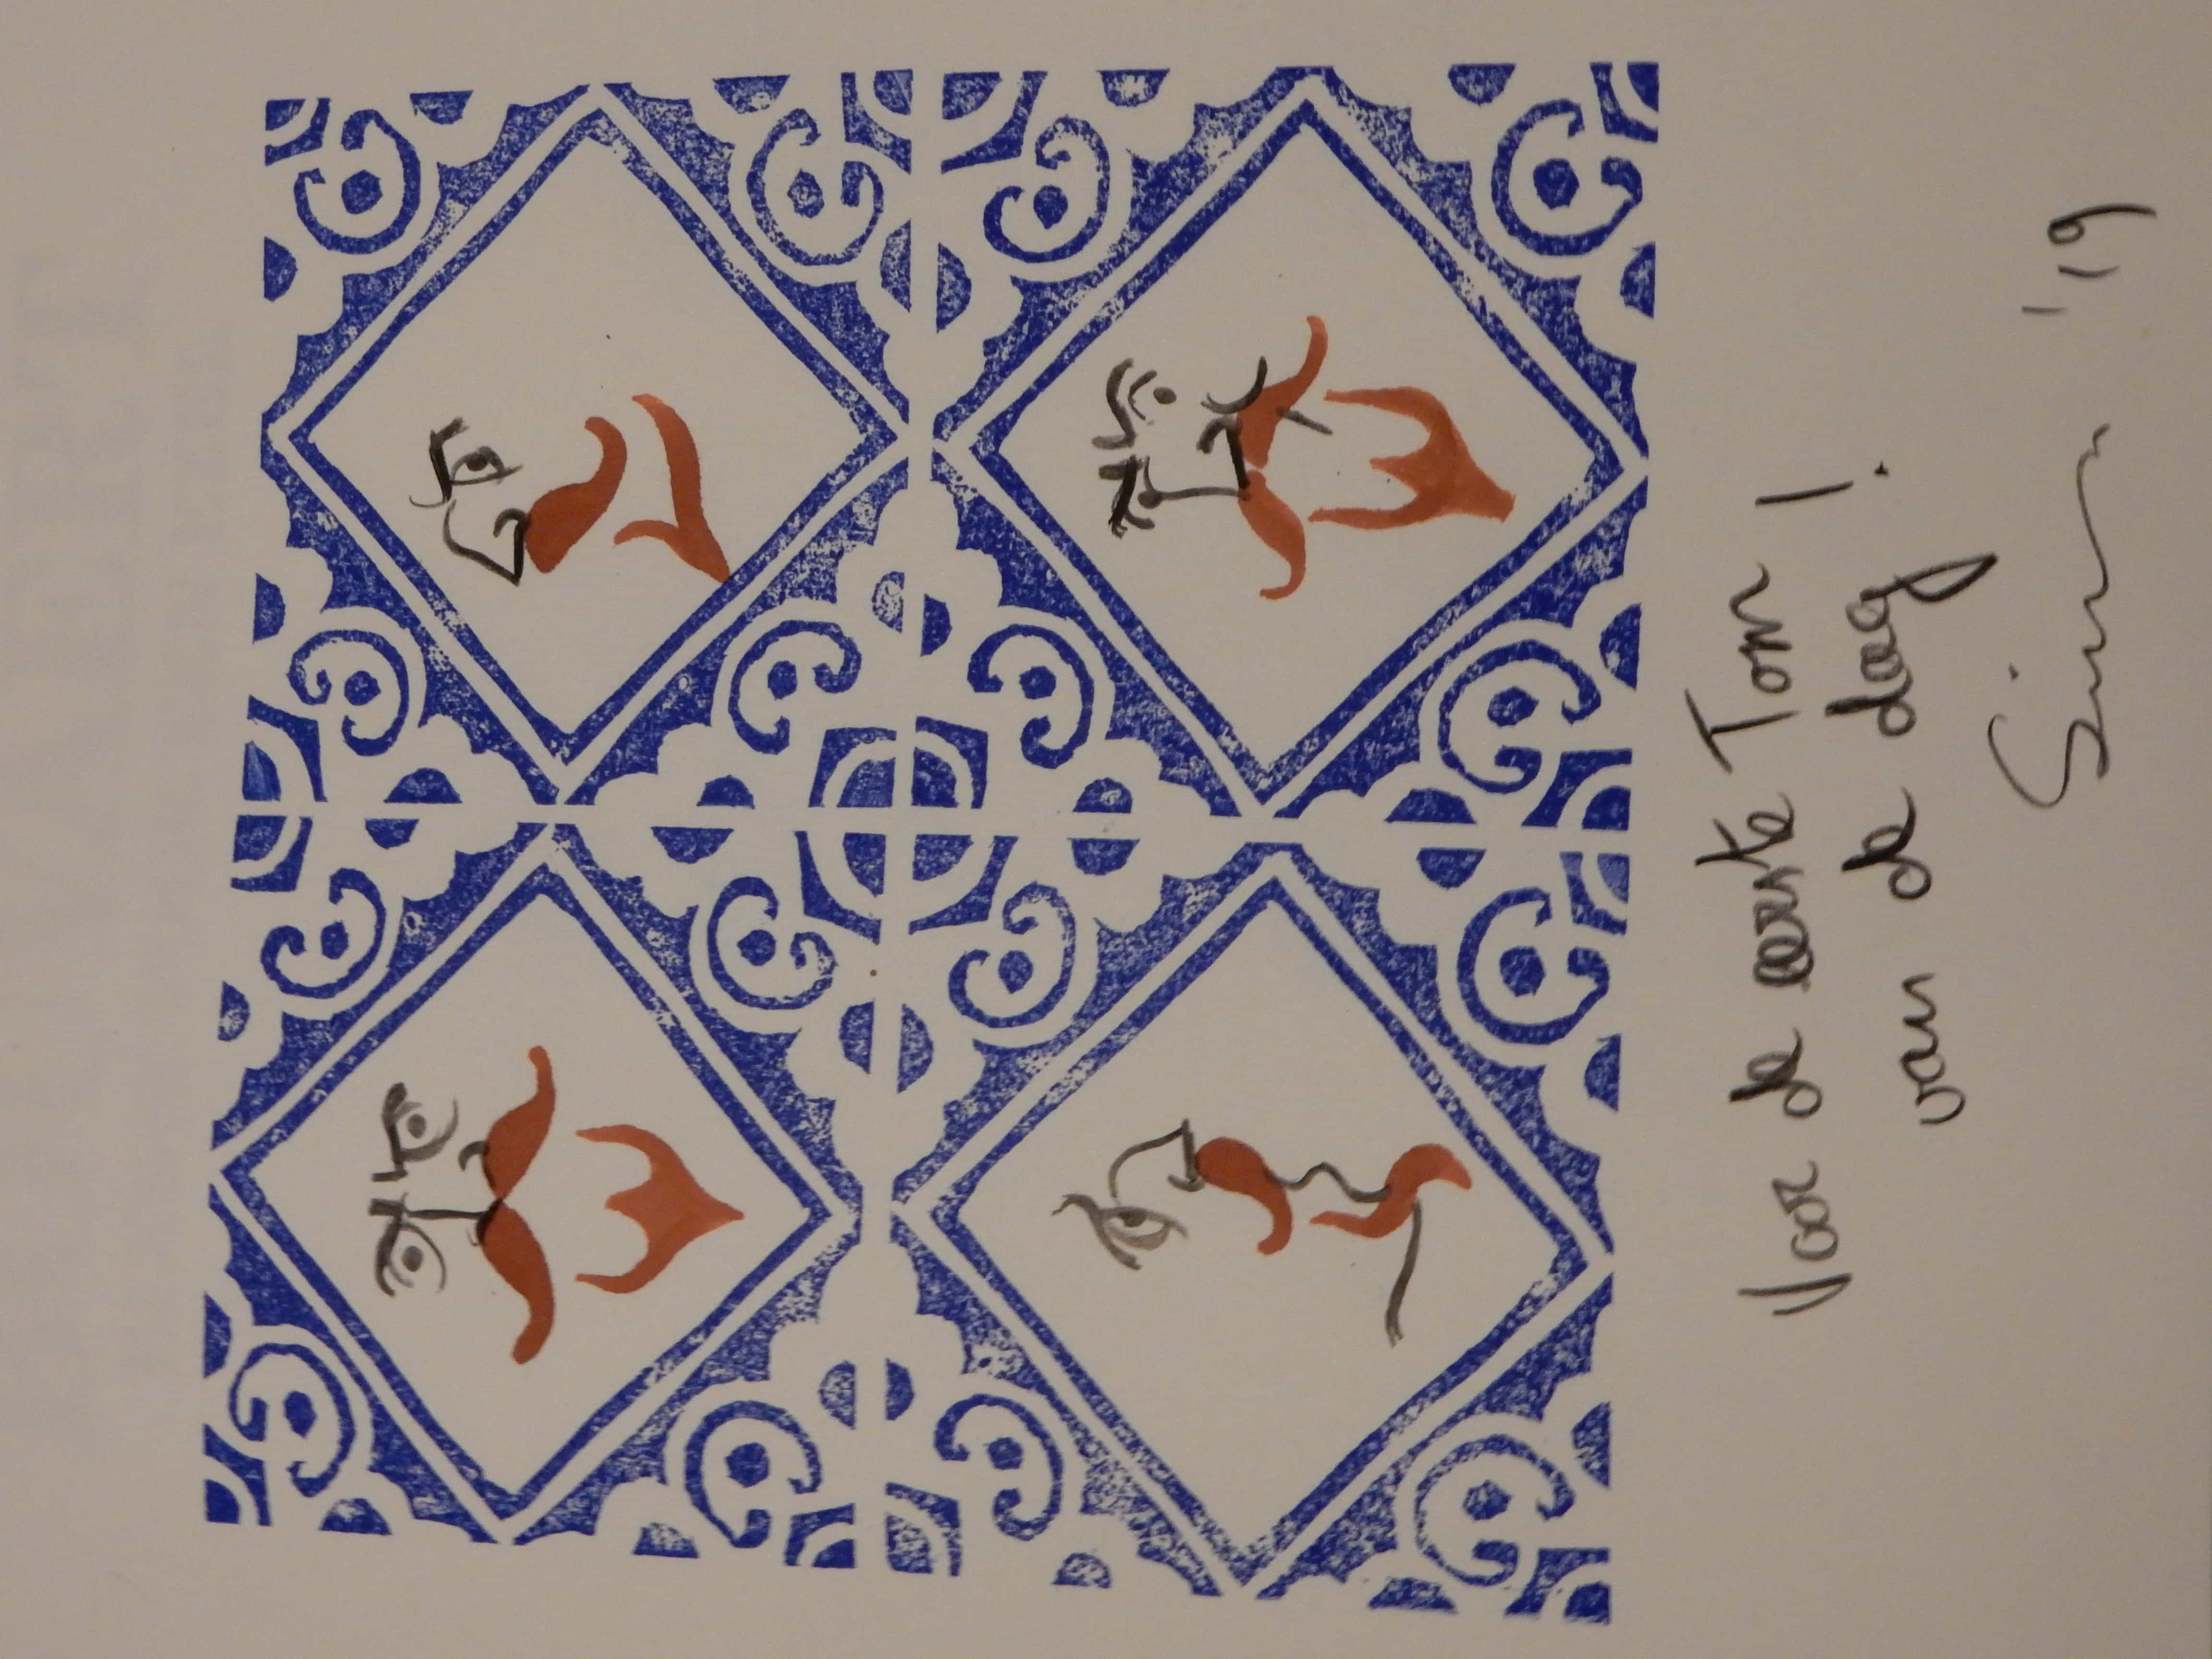 Voor de eerste Tom
van de dag!
'19